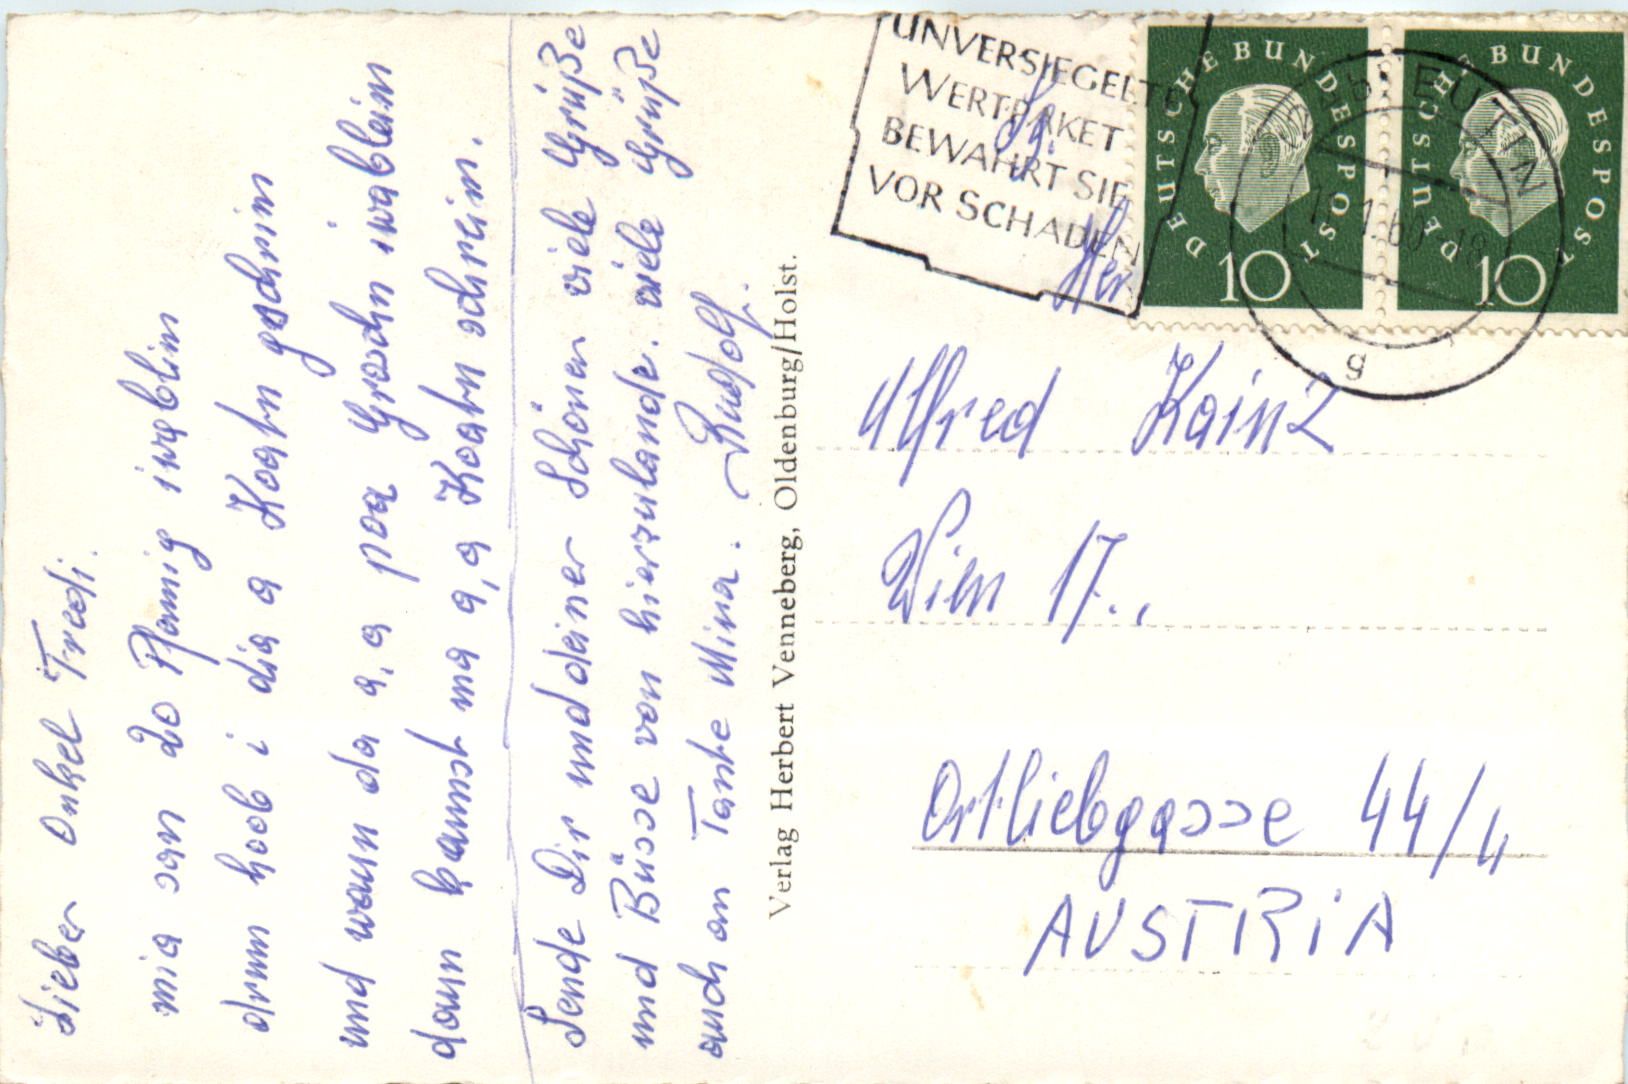 Lieber Onkel Fredi.
mia san 20 Pfennig iwablim
drum hoob i dia a Koatn gschrim
und waun da a, a poa Groschn iwableim
daun kaunst ma a, a Koatn schreim.
Sende Dir und deiner Schönen viele Grüße
und Büsse von hierzulande. viele Grüße
auch an Tante Mina. Rudolf.
Verlag Herbert Venneberg, Oldenburg/Holst.
UNVERSIEGELTE
WERTPAKET
BEWAHRT SIE
VOR SCHADEN
DEUTSCHE BUNDESPOST
10
DEUTSCHE BUNDESPOST
10
EUTIN
1.60
18
g
Alfred Kainz
Wien 17.,
Ortliebgasse 44/4
AUSTRiA